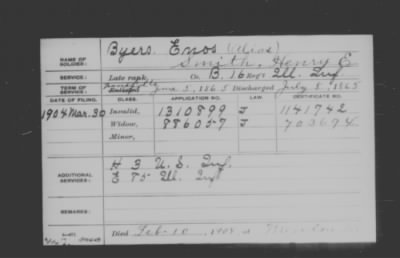 Byers, Enos (Alias)
NAME OF SOLDIER: Smith, Henry E
SERVICE: Late rank, Co. B, 16 Reg't Ill. Inf.
TERM OF SERVICE: Enlisted June 3, 1865 Discharged July 8, 1865
DATE OF FILING. CLASS. APPLICATION NO. LAW. CERTIFICATE NO.
1904 Mar. 30 Invalid, 1310899 J 1141742
Widow, 886057 J 703694
Minor,
H 3 U.S. Inf.
ADDITIONAL SERVICES: E 85 Ill. Inf.
REMARKS:
Died Feb-10, 1908, at